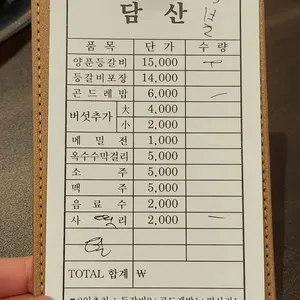 담 산
품 목 단 가 수 량
양푼등갈비 15,000
등갈비포장 14,000
곤드레밥 6,000
버섯추가 大 4,000
小 2,000
메밀전 1,000
옥수수막걸리 5,000
소 주 5,000
맥 주 5,000
음료수 2,000
사 리 2,000
TOTAL 합계 ₩